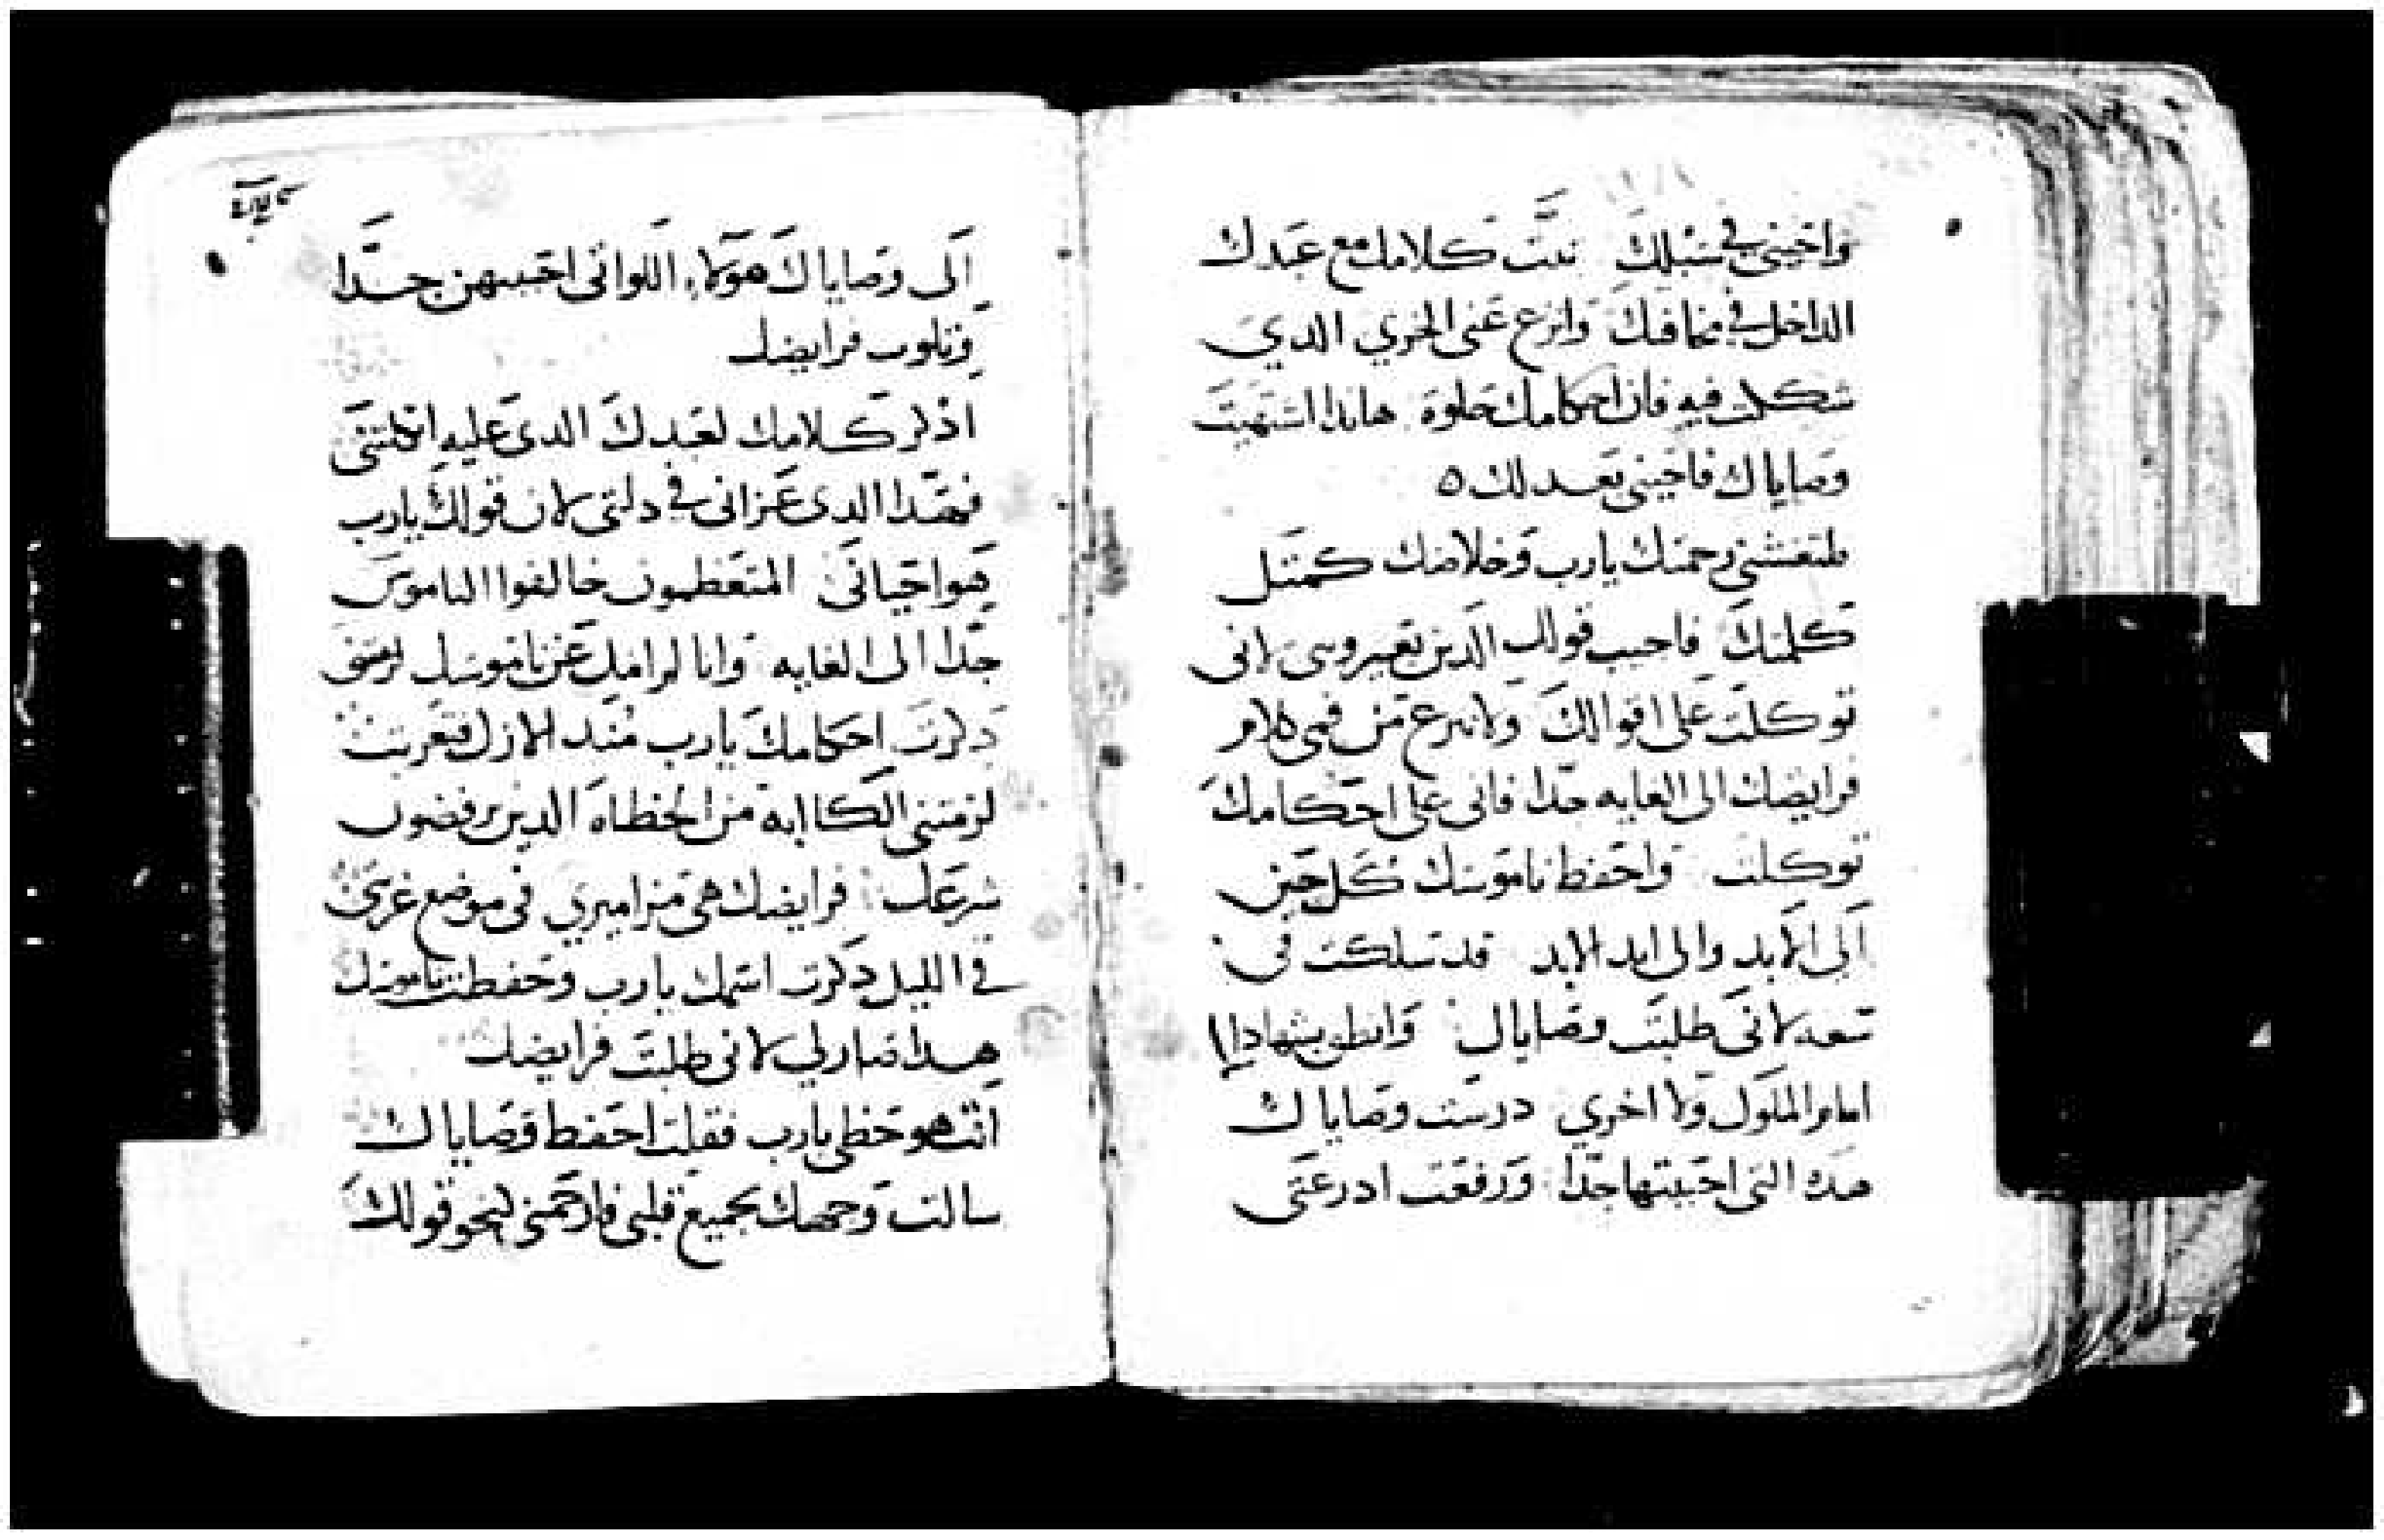 واحيني في سبلك ثبت كلامك مع عبدك
الداخل في مخافتك وانزع عني الخزي الدي
شككت فيه فان احكامك حلوة هاندا اشتهيت
وصاياك فاحيني بعدلك ٥
فلتغشني رحمتك يارب وخلاصك كمتل
كلمتك فاجيب قولك الدين يعيروني لاني
توكلت على اقوالك ولا تنزع من فمي كلام
فرايضك الى الغايه جدا فاني على احكامك
توكلت واحفظ ناموسك كل حين
الى الابد والى ابد الابد قد سلكت في
سعه لاني طلبت وصاياك وانطق بشهاداتك
امام الملوك ولا اخزي درست وصاياك
هده التي احببتها جدا ورفعت ادرعتي
الى وصاياك هولاء اللواتي احببهن جدا
وتلوت فرايضك
ادكر كلامك لعبدك الدي عليه اتكلتني
فهدا الدي عزاني في دلتي لان قولك يارب
هو احياني المتعظمون خالفوا الناموس
جدا الى الغايه وانا لم امل عن ناموسك
دكرت احكامك يارب مند الازل فتعزيت
لزمتني الكاابه من الخطاه الدين رفضوا
شرعك فرايضك هي مزاميري في موضع غربتي
في الليل دكرت اسمك يارب وحفظت ناموسك
هدا صار لي لاني طلبت فرايضك
انت هو حظي يارب فقلت احفظ وصاياك
سالت وجهك بجميع قلبي فارحمني كنحو قولك